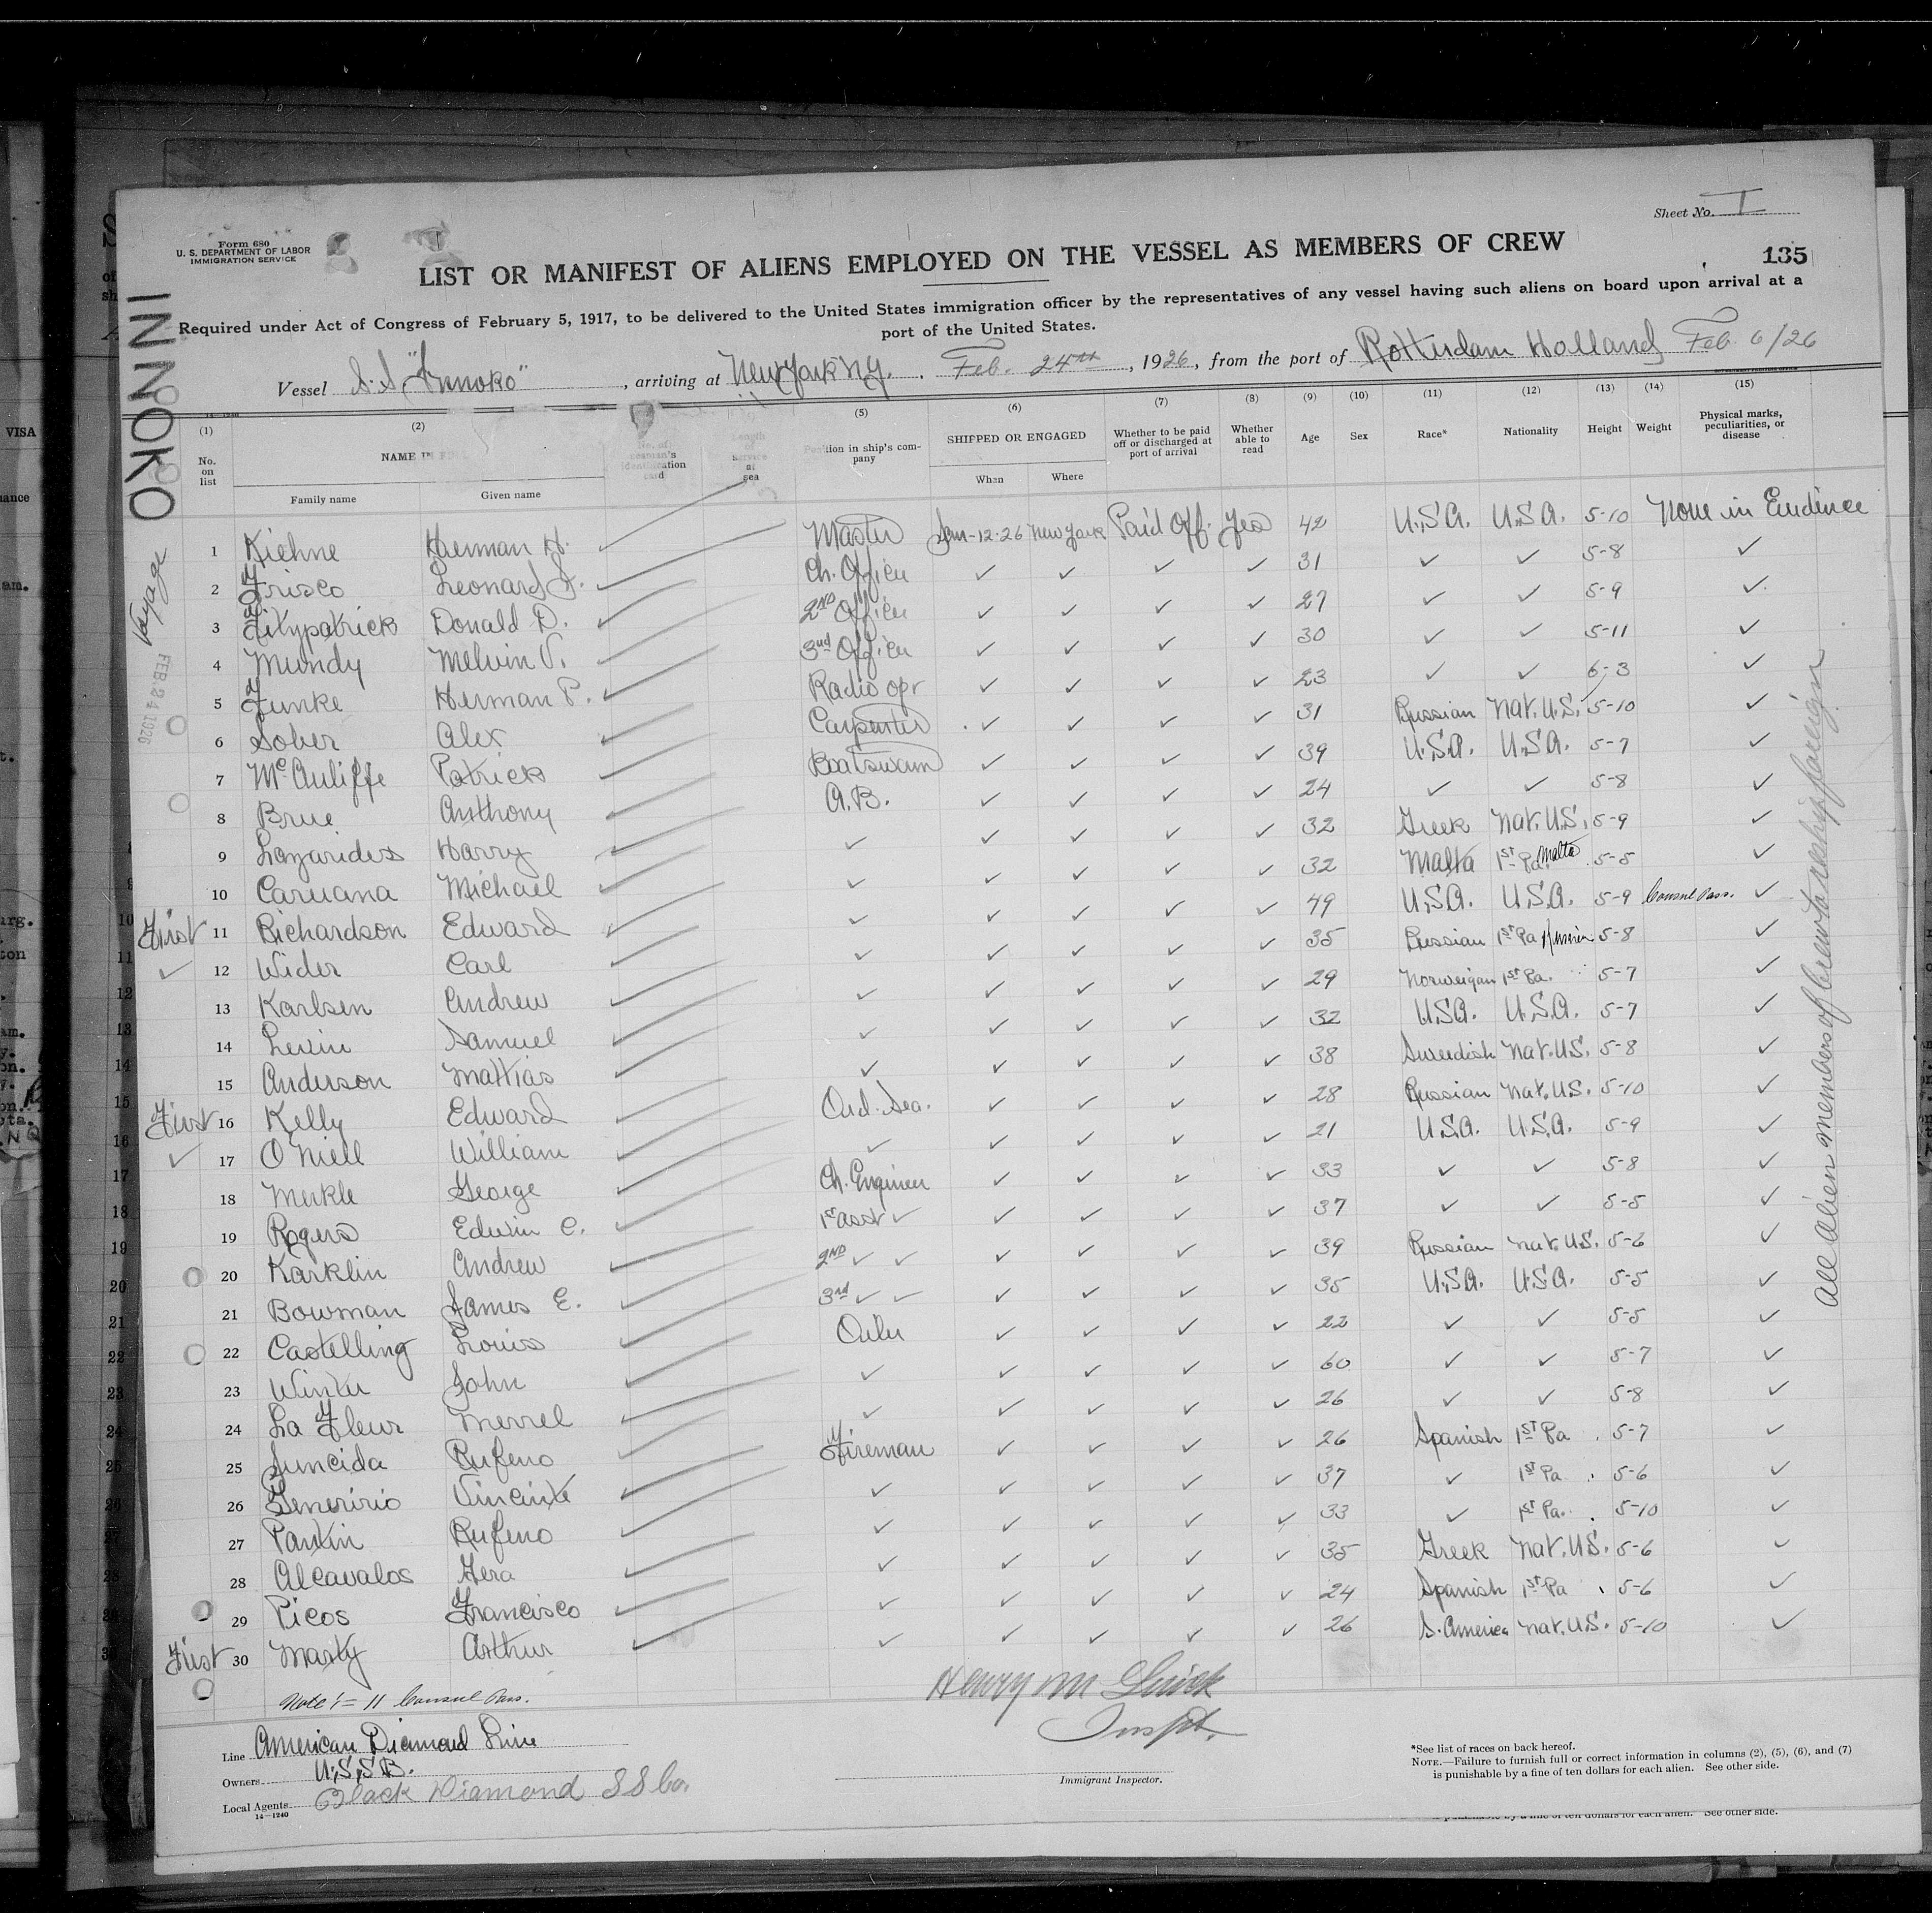 Sheet No. I
Form 680
U. S. DEPARTMENT OF LABOR
IMMIGRATION SERVICE
LIST OR MANIFEST OF ALIENS EMPLOYED ON THE VESSEL AS MEMBERS OF CREW
135
Required under Act of Congress of February 5, 1917, to be delivered to the United States immigration officer by the representatives of any vessel having such aliens on board upon arrival at a
port of the United States.
Vessel S.S. "Innoko", arriving at New York N.Y. Feb. 24th, 1926, from the port of Rotterdam Holland Feb 6/26
INNOKO
Voyage
FEB 24 1926
(1) (2) (5) (6) (7) (8) (9) (10) (11) (12) (13) (14) (15)
No. on list NAME IN FULL No. of seaman's identification card Length of service at sea Position in ship's company SHIPPED OR ENGAGED Whether to be paid off or discharged at port of arrival Whether able to read Age Sex Race* Nationality Height Weight Physical marks, peculiarities, or disease
Family name Given name When Where
1 Kiehne Herman H. Master Jan-12-26 New York Paid Off. Yes 42 U.S.A. U.S.A. 5-10 None in Evidence
2 Frisco Leonard F. Ch. Officer ✓ ✓ ✓ ✓ 31 ✓ ✓ 5-8 ✓
3 Fitzpatrick Donald D. 2ND Officer ✓ ✓ ✓ ✓ 27 ✓ ✓ 5-9 ✓
4 Mundy Melvin V. 3rd Officer ✓ ✓ ✓ ✓ 30 ✓ ✓ 5-11 ✓
5 Funke Herman P. Radio opr ✓ ✓ ✓ ✓ 23 ✓ ✓ 6-3 ✓
6 Sober Alex Carpenter ✓ ✓ ✓ ✓ 31 Russian Nat. U.S. 5-10 ✓
7 McAuliffe Patrick Boatswain ✓ ✓ ✓ ✓ 39 U.S.A. U.S.A. 5-7 ✓
8 Brue Anthony A.B. ✓ ✓ ✓ ✓ 24 ✓ ✓ 5-8 ✓
9 Lazarides Harry ✓ ✓ ✓ ✓ ✓ 32 Greek Nat. U.S. 5-9 ✓
10 Caruana Michael ✓ ✓ ✓ ✓ ✓ 32 Malta 1st Pa. Malta 5-5 ✓
First 11 Richardson Edward ✓ ✓ ✓ ✓ ✓ 49 U.S.A. U.S.A. 5-9 Consul Pass. ✓
✓ 12 Wider Carl ✓ ✓ ✓ ✓ ✓ 35 Russian 1st Pa Russian 5-8 ✓
13 Karlsen Andrew ✓ ✓ ✓ ✓ ✓ 29 Norweigan 1st Pa. 5-7 ✓
14 Levin Samuel ✓ ✓ ✓ ✓ ✓ 32 U.S.A. U.S.A. 5-7 ✓
15 Anderson Mattias ✓ ✓ ✓ ✓ ✓ 38 Sweedish Nat. U.S. 5-8 ✓
First 16 Kelly Edward Ord. Sea. ✓ ✓ ✓ ✓ 28 Russian Nat. U.S. 5-10 ✓
✓ 17 O'Niell William ✓ ✓ ✓ ✓ ✓ 21 U.S.A. U.S.A. 5-9 ✓
18 Merkle George Ch. Engineer ✓ ✓ ✓ ✓ 33 ✓ ✓ 5-8 ✓
19 Rogers Edwin C. 1st Asst ✓ ✓ ✓ ✓ ✓ 37 ✓ ✓ 5-5 ✓
20 Karklin Andrew 2ND ✓ ✓ ✓ ✓ ✓ ✓ 39 Russian Nat. U.S. 5-6 ✓
21 Bowman James E. 3rd ✓ ✓ ✓ ✓ ✓ ✓ 35 U.S.A. U.S.A. 5-5 ✓
22 Castelling Louis Oiler ✓ ✓ ✓ ✓ 22 ✓ ✓ 5-5 ✓
23 Winter John ✓ ✓ ✓ ✓ ✓ 60 ✓ ✓ 5-7 ✓
24 La Fleur Merrel ✓ ✓ ✓ ✓ ✓ 26 ✓ ✓ 5-8 ✓
25 Juncida Rufeno Fireman ✓ ✓ ✓ ✓ 26 Spanish 1st Pa. 5-7 ✓
26 Generirio Vincinte ✓ ✓ ✓ ✓ ✓ 37 ✓ 1st Pa. 5-6 ✓
27 Pantin Rufeno ✓ ✓ ✓ ✓ ✓ 33 ✓ 1st Pa. 5-10 ✓
28 Alcavalos Hera ✓ ✓ ✓ ✓ ✓ 35 Greek Nat. U.S. 5-6 ✓
29 Picos Francisco ✓ ✓ ✓ ✓ ✓ 24 Spanish 1st Pa 5-6 ✓
First 30 Marty Arthur ✓ ✓ ✓ ✓ ✓ 26 S. America Nat. U.S. 5-10 ✓
All Alien members of Crew to reship foreign
Note != 11 Consul Pass.
Henry M Glück
Inspt.
Immigrant Inspector.
Line American Diamond Line
Owners U.S.S.B.
Local Agents Black Diamond SS Co.
14—1240
*See list of races on back hereof.
NOTE.—Failure to furnish full or correct information in columns (2), (5), (6), and (7)
is punishable by a fine of ten dollars for each alien. See other side.